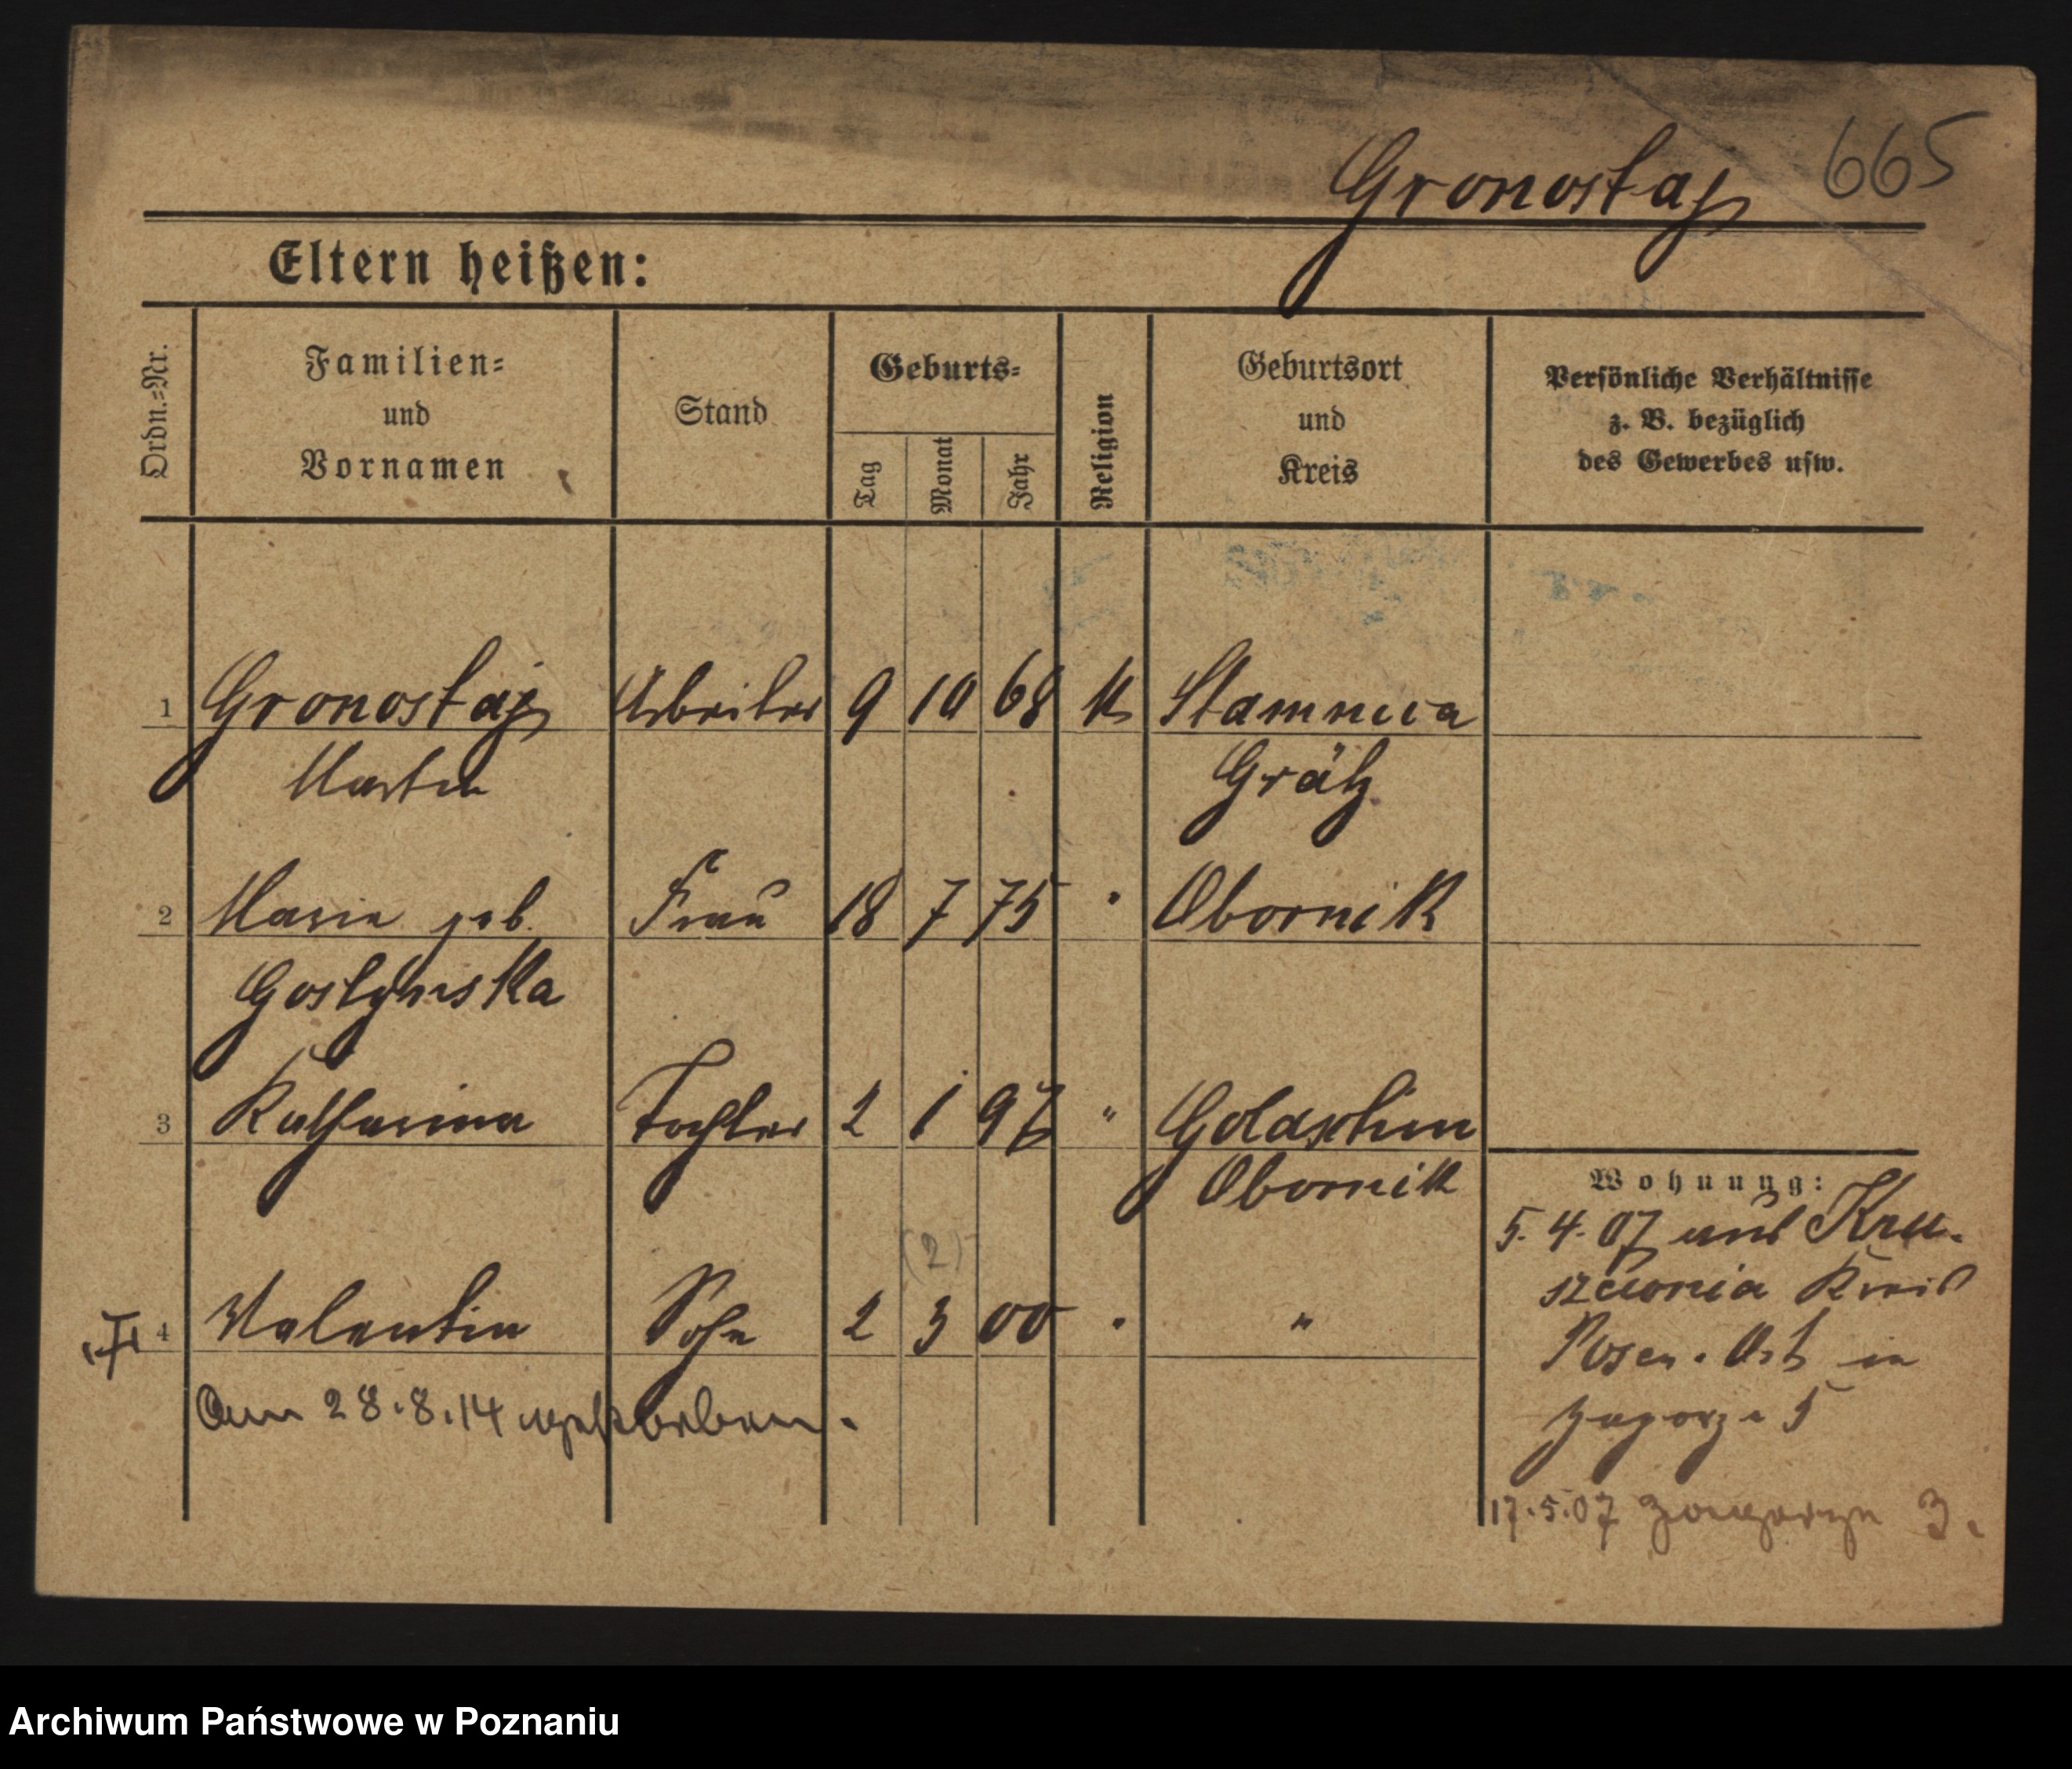 Gronostaj 665
Eltern heißen:
Ordn.=Nr.
Familien=
und
Vornamen
Stand
Geburts=
Tag
Monat
Jahr
Religion
Geburtsort
und
Kreis
Persönliche Verhältnisse
z. B. bezüglich
des Gewerbes usw.
1 Gronostaj Arbeiter 9 10 68 K
Martin Grätz
2 Marie geb. Frau 18 7 75 " Obornik
Gostynska
3 Katharina Tochter 2 1 97 "
Obornik
(2)
4 Valentin Sohn 2 3 00 " "
Am 28.8.14 gestorben.
Wohnung:
5.4.07 aus Kru-
szewnia Kreis
Posen-Ost in
Zagorze 5
17.5.07 Zagorze 3.
Archiwum Państwowe w Poznaniu